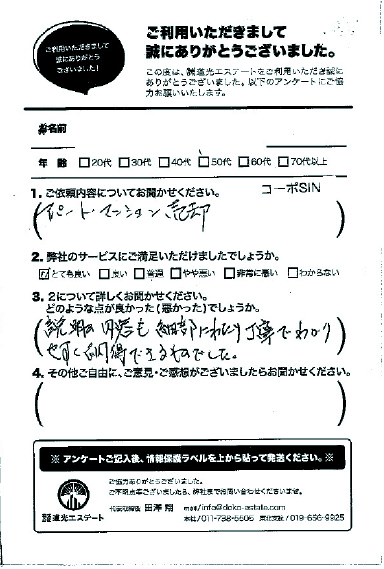 ご利用いただきまして
誠にありがとう
ございました！
ご利用いただきまして
誠にありがとうございました。
この度は、㈱道光エステートをご利用いただき誠に
ありがとうございました。以下のアンケートにご協
力お願いいたします。
お名前
年 齢 □20代 □30代 □40代 □50代 □60代 □70代以上
1. ご依頼内容についてお聞かせください。 コーポSIN
アパート・マンション売却
2. 弊社のサービスにご満足いただけましたでしょうか。
☑とても良い □良い □普通 □やや悪い □非常に悪い □わからない
3. 2について詳しくお聞かせください。
どのような点が良かった（悪かった）でしょうか。
説明の内容も細部にわたり丁寧でわかり
やすく納得できるものでした。
4. その他ご自由に、ご意見・ご感想がございましたらお聞かせください。
※ アンケートご記入後、情報保護ラベルを上から貼って発送ください。※
ご協力ありがとうございました。
ご不明点等ございましたら、弊社までお問い合わせくださいませ。
株式会社 道光エステート
代表取締役 田澤 翔 mail/info@doko-estate.com
本社/011-738-5506 東北支社/019-656-9925